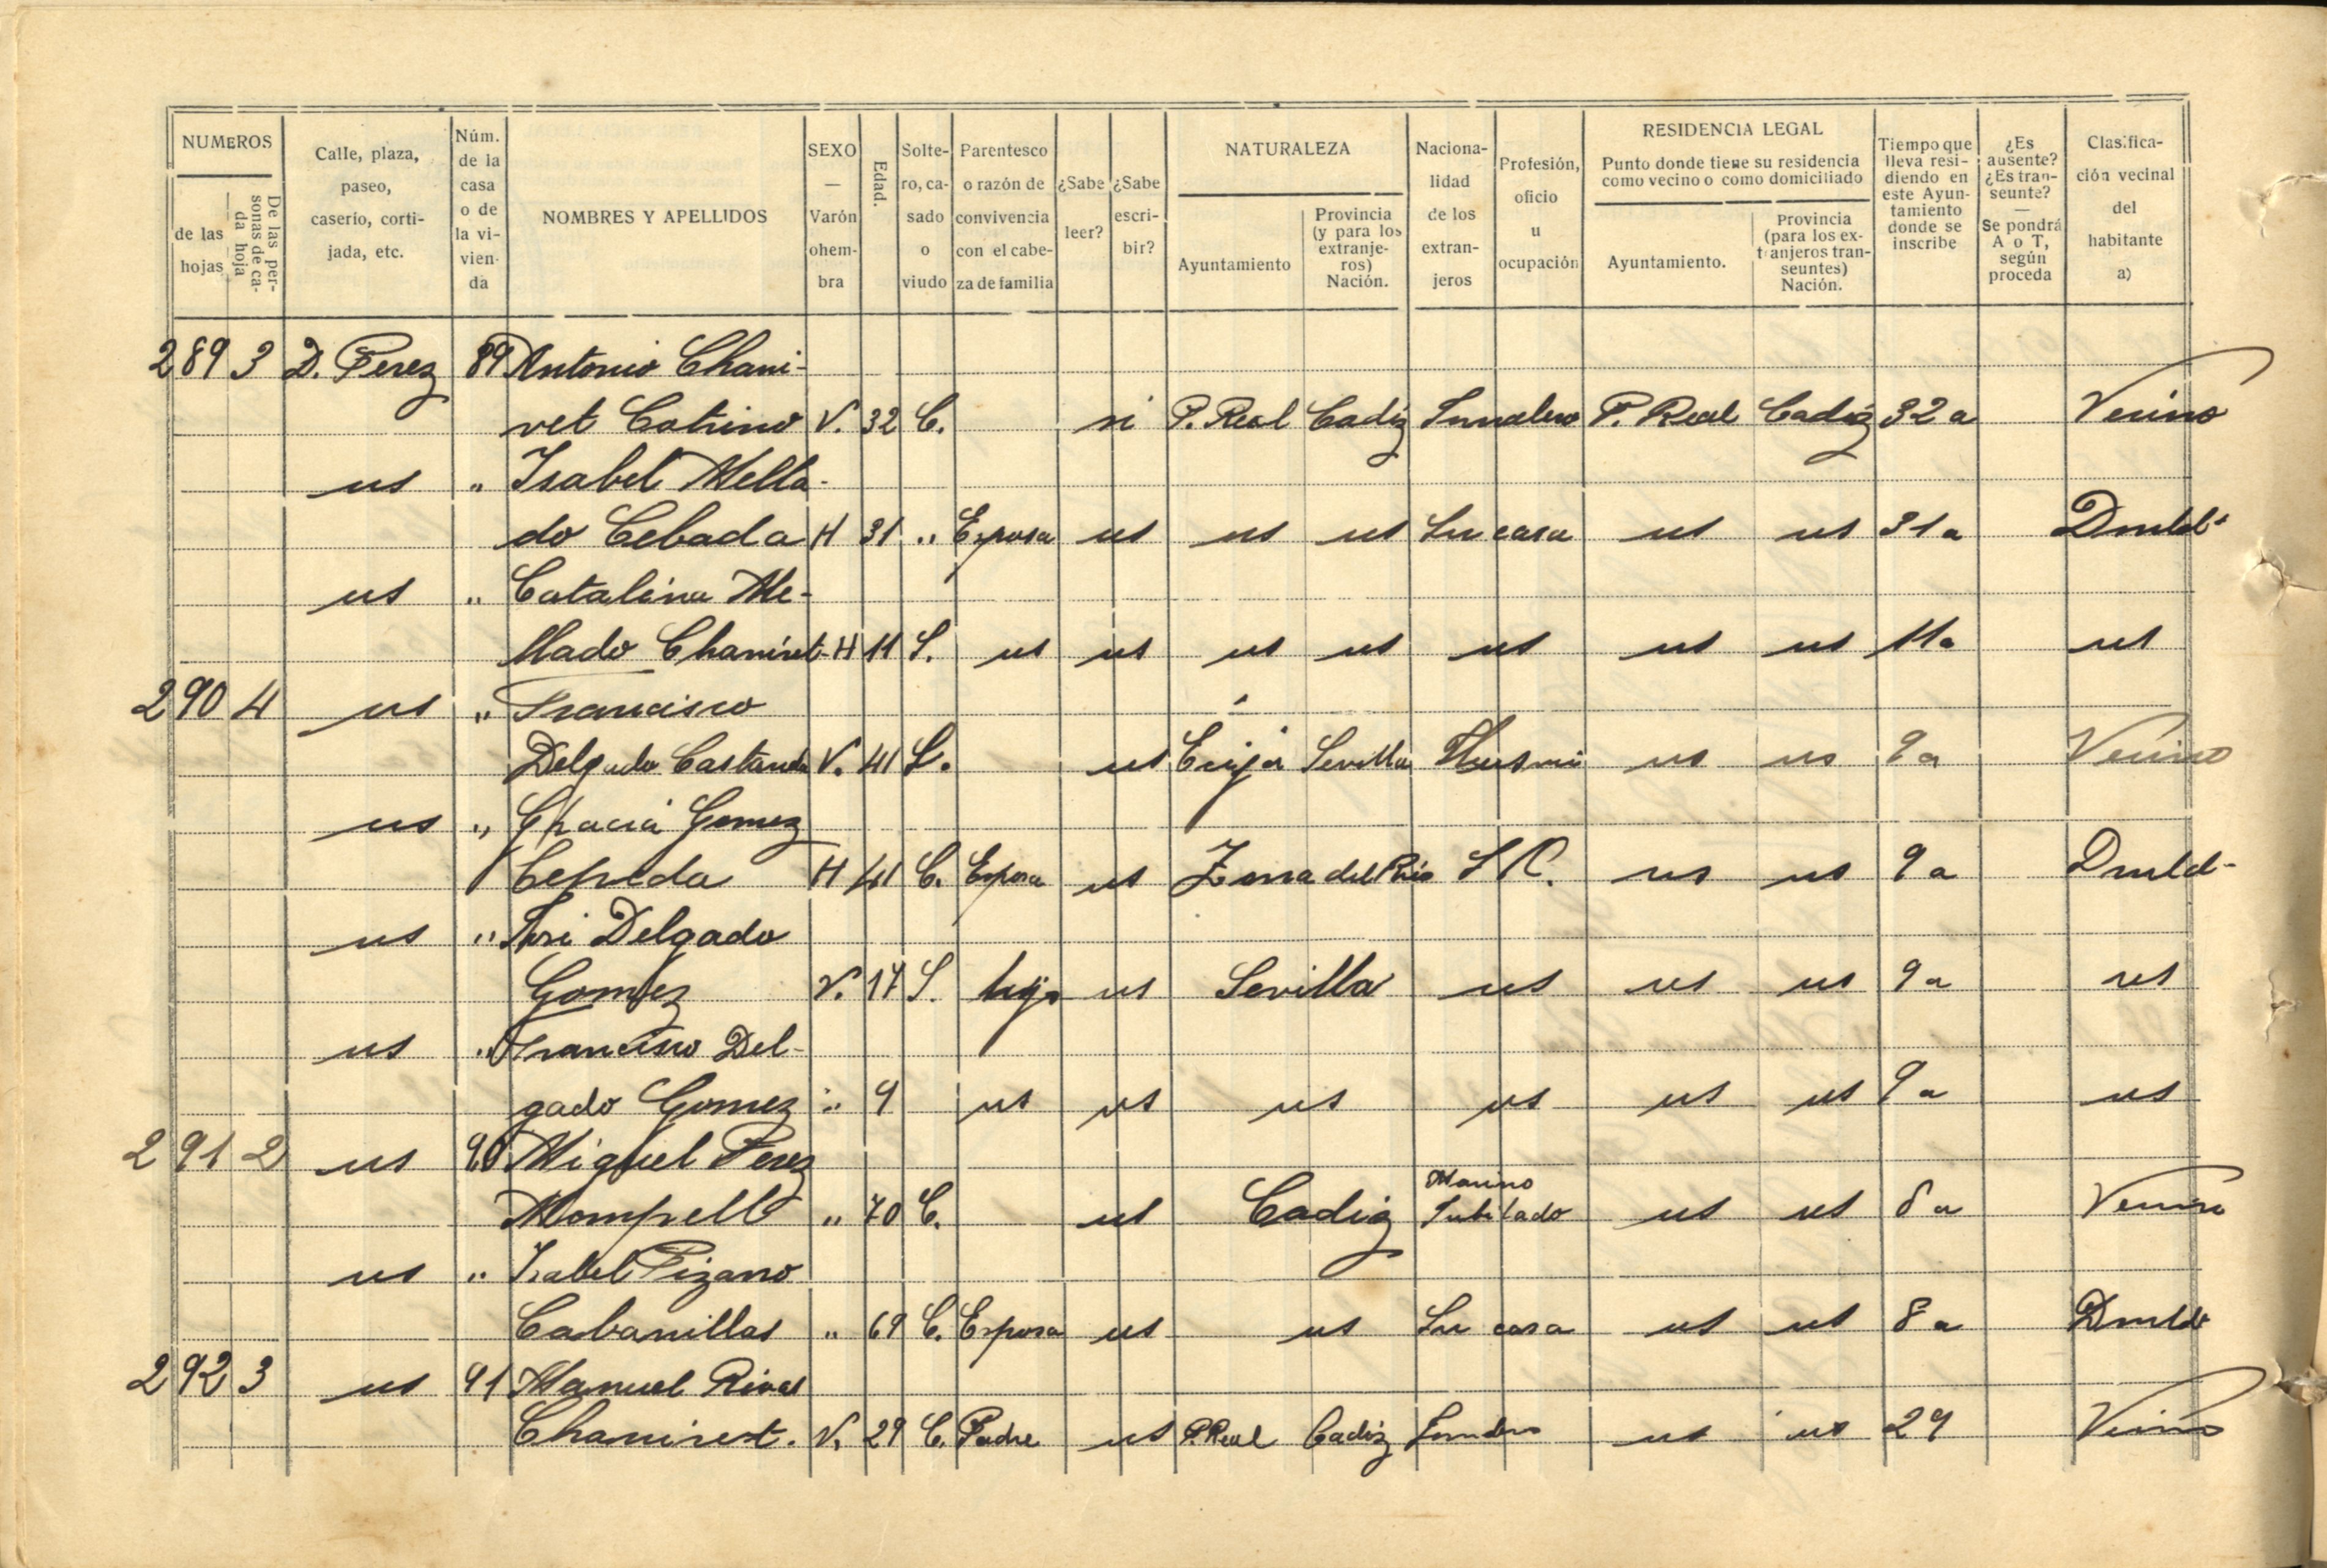 NUMEROS
de las hojas
De las personas de cada hoja
Calle, plaza, paseo, caserío, cortijada, etc.
Núm. de la casa o de la vivienda
NOMBRES Y APELLIDOS
SEXO — Varón o hembra
Edad.
Soltero, casado o viudo
Parentesco o razón de convivencia con el cabeza de familia
¿Sabe leer?
¿Sabe escribir?
NATURALEZA
Ayuntamiento
Provincia (y para los extranjeros) Nación.
Nacionalidad de los extranjeros
Profesión, oficio u ocupación
RESIDENCIA LEGAL
Punto donde tiene su residencia como vecino o como domiciliado
Ayuntamiento.
Provincia (para los extranjeros transeuntes) Nación.
Tiempo que lleva residiendo en este Ayuntamiento donde se inscribe
¿Es ausente? ¿Es transeunte? — Se pondrá A o T, según proceda
Clasificación vecinal del habitante a)
289 3 D. Perez 89 Antonio Chani-
vet Cotrino V. 32 C. si P. Real Cadiz P. Real Cadiz 32 a Vecino
us " Isabel Mella-
do Cebada H 31 " Esposa us us us Su casa us us 31 a Dmld
us " Catalina Me-
llado Chanivet H 11 S. us us us us us us us 11 a us
290 4 us " Francisco
Delgado Castando V. 41 S. us Ecija Sevilla us us 9 a Vecino
us " Gracia Gomez
Cepeda H 41 C. Esposa us del Rio S C. us us 9 a Dmld
us " José Delgado
Gomez V. 17 S. hijo us Sevilla us us us 9 a us
us " Francisco Del-
gado Gomez " 9 us us us us us us 9 a us
291 2 us 90 Miguel Perez
Mompell " 70 C. us Cadiz Marino Jubilado us us 8 a Vecino
us " Isabel Pizarro
Cabanillas " 69 C. Esposa us us Su casa us us 8 a Dmld
292 3 us 91 Manuel Rivas
Chanivet. V. 29 C. Padre us P. Real Cadiz us us 29 Vecino